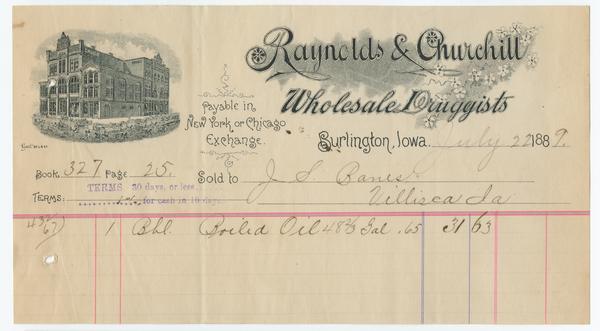 Raynolds & Churchill
Wholesale Druggists
Payable in
New York or Chicago
Exchange.
Burlington, Iowa. July 22 1889.
Book, 327 Page 25.
Sold to J S
Villisca Ia
TERMS 30 days, or less
TERMS: 1% for cash in 10 days
1 Bbl. Boiled Oil 48⅔ Gal .65 31 63